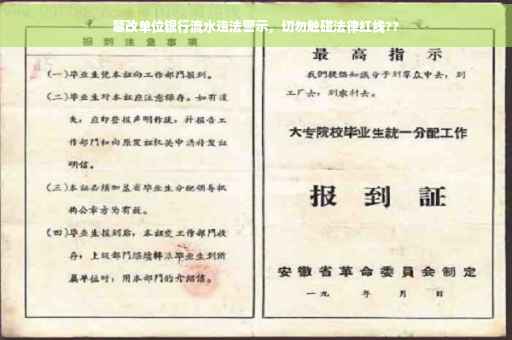 篡改单位银行流水违法警示，切勿触碰法律红线??
报到注意事项
(一)毕业生凭本证向工作部門报到。
(二)毕业生对本证应注意保存。如有遗
失，应即登报声明作废，并报告工
作部門和向原发证机关申请补发证
明信。
(三)本证必须加盖省毕业生分配领导机
构公章方为有效。
(四)毕业生报到后，本证交工作部門收
存；上级部門继续轉派毕业生到所
属单位时，用本部門的介绍信。
最高指示
我們提倡知识分子到羣众中去，到
工厂去，到农村去。
大专院校毕业生統一分配工作
报到証
安徽省革命委員会制定
一九 年 月 日